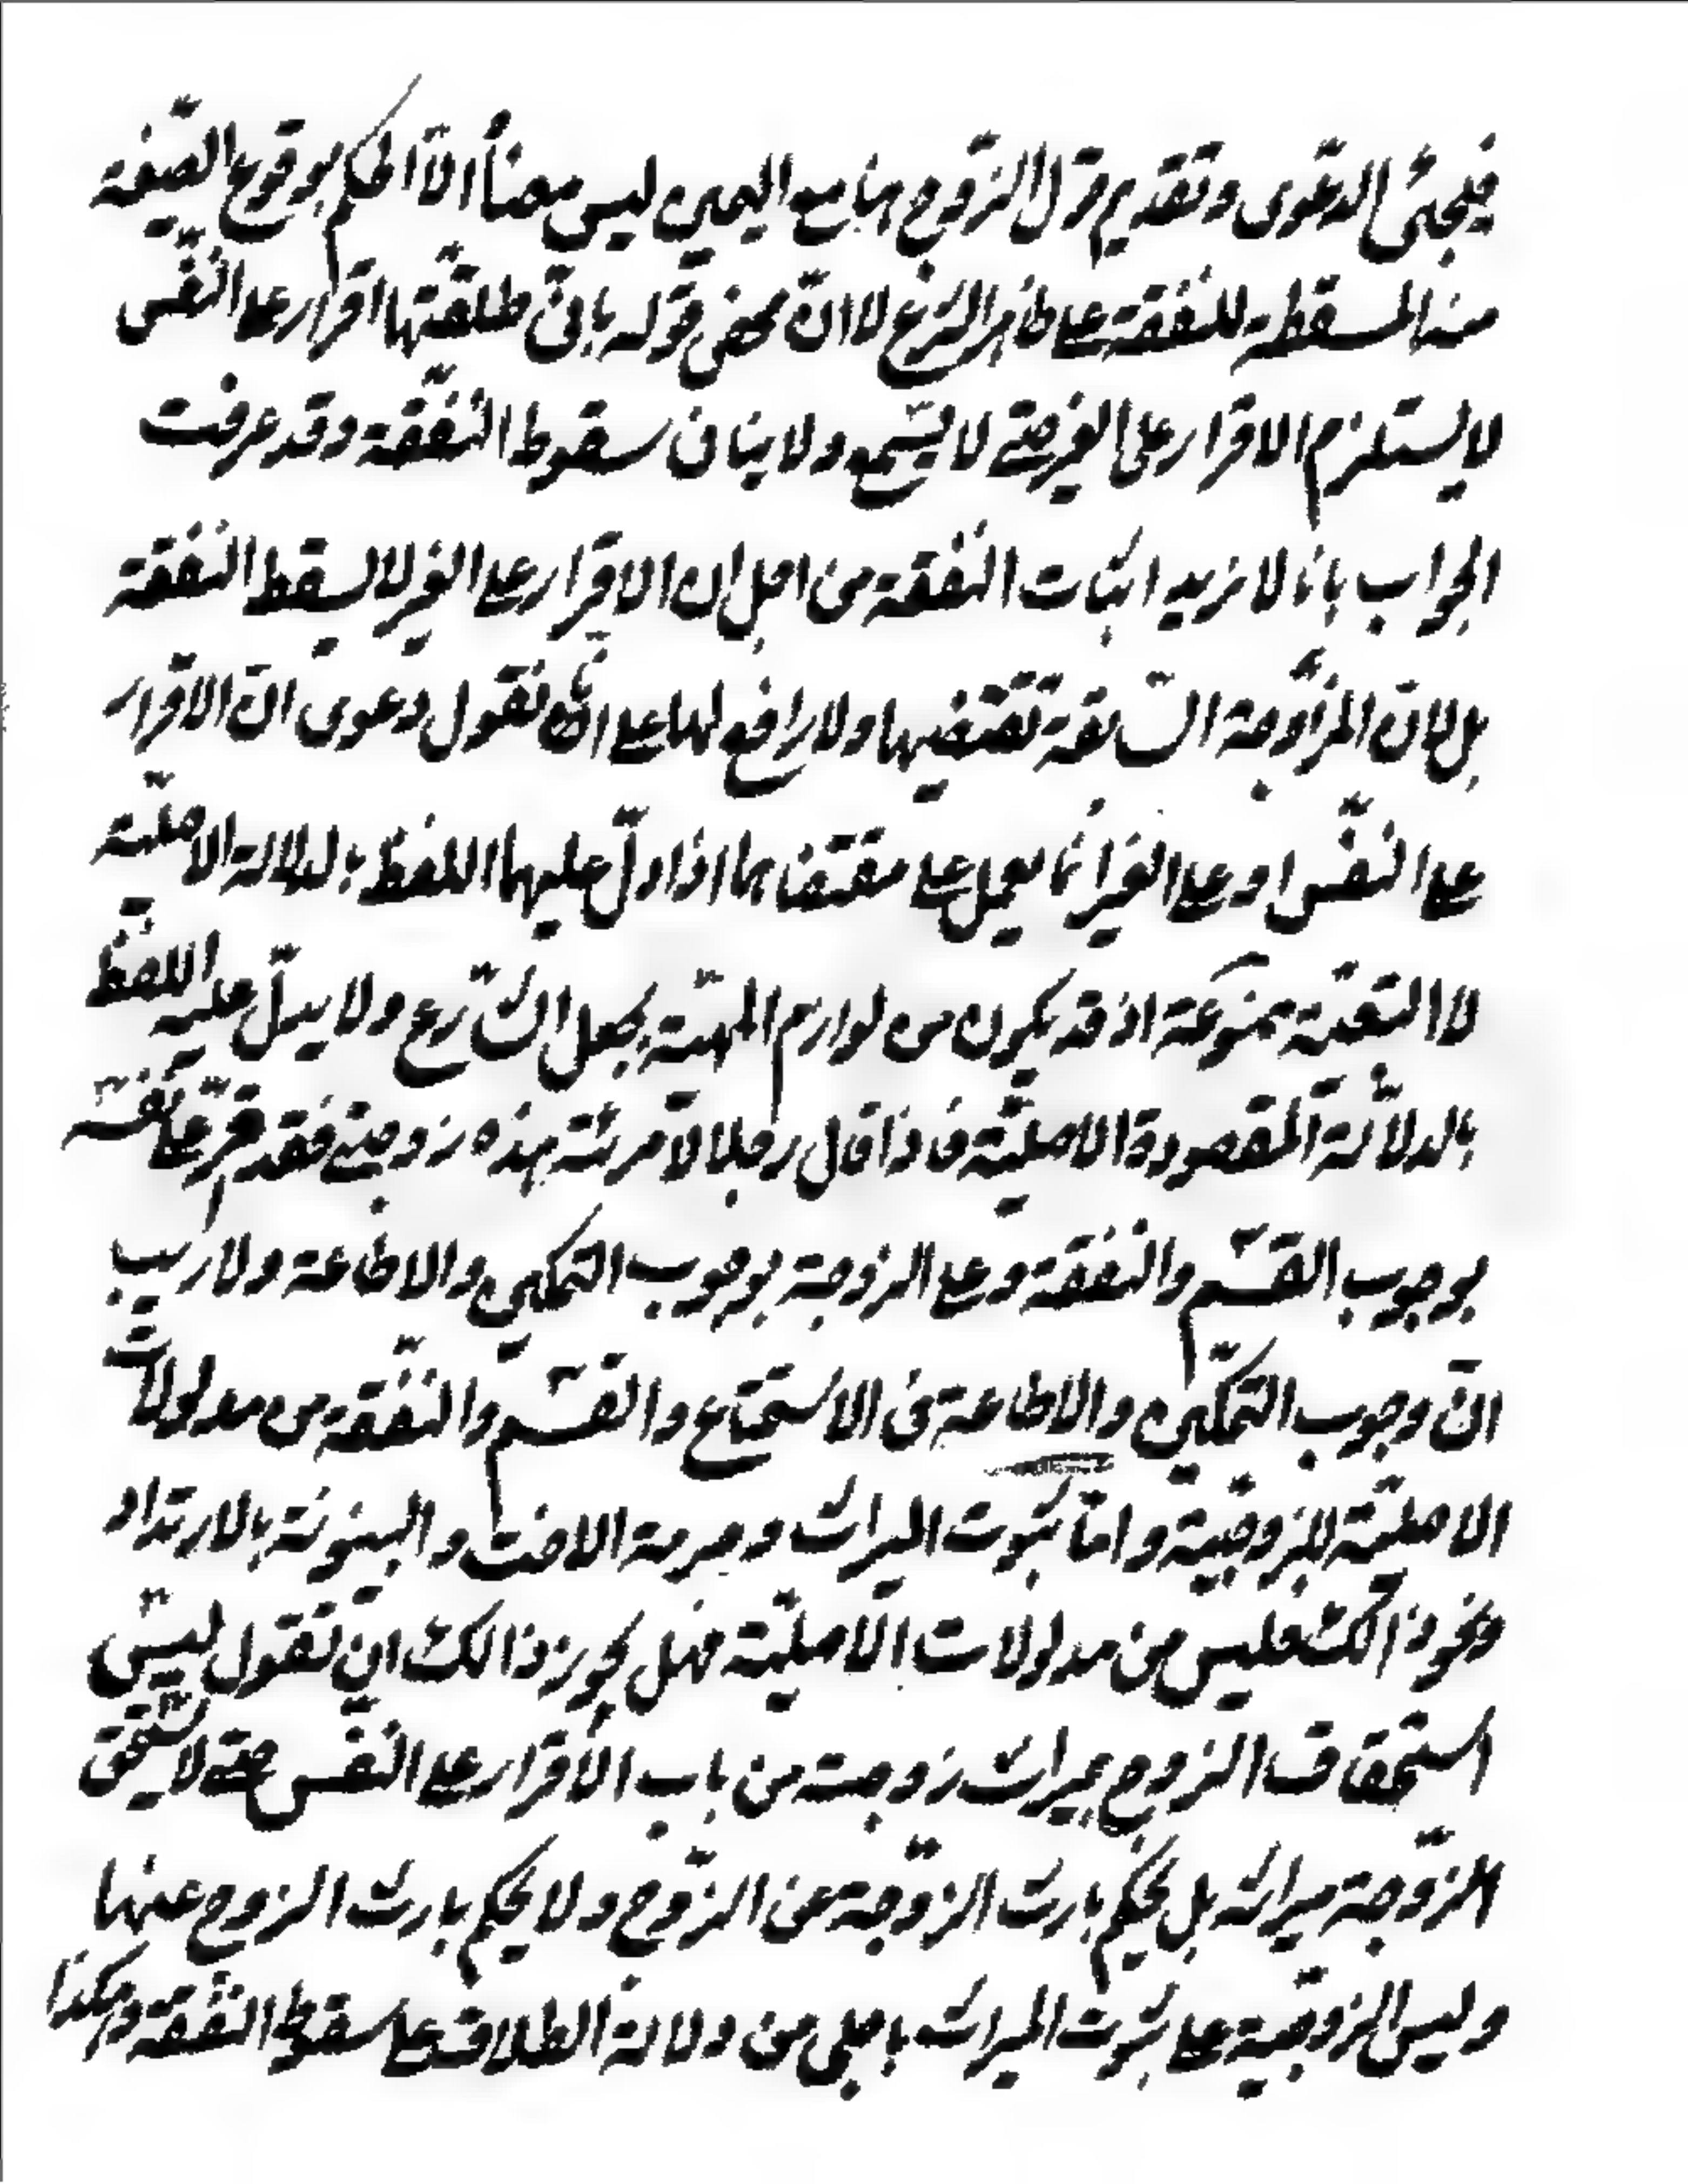 فيجئ الدعوى وتقديم قول الزّوج هنا مع اليمين ليس معناه الّا الحكم بوقوع الصّيغة
منه المسقطة للنفقة على ظاهر الشرع لا انّ محض قوله بانّي طلقتها اقرار على النّفس
لا يستلزم الاقرار على الغير حتى لا يسمع ولا ينافى سقوط النّفقة وقد عرفت
الجواب بانا لا نريد اثبات النّفقة من اجل ان الاقرار على الغير لا يسقط النفقة
بل لانّ المزاوجة السّابقة تقتضيها ولا رافع لها على انّا نقول دعوى انّ الاقرار
على النّفس او على الغير انّما يعمل على مقتضاهما اذا دلّ عليهما اللفظ بالدلالة الاصليّة
لا التبعيّة ممنوعة اذ قد يكون من لوازم المهيّة بجعل الشّارع ولا يدلّ عليه اللفظ
بالدلالة المقصودة الاصليّة فاذا قال رجلا لامرئة هذه زوجتي فقد اقرّ على نفسه
بوجوب القسم والنفقة وعلى الزوجة بوجوب التمكين والاطاعة ولا ريب
انّ وجوب التمكين والاطاعة فى الاستمتاع والقسم والنّفقة من مدلولات
الاصليّة للزوجيّة وامّا ثبوت الميراث وحرمة الاخت والبينونة بالارتداد
ونحو ذالك فليس من مدلولات الاصليّة فهل يجوز ذالك ان تقول ليس
استحقاق الزوج بميراث زوجته من باب الاقرار على النّفس حتى لا يستحق
الزّوجة ميراثه بل يحكم بارث الزوّجة عن الزّوج ولا يحكم بارث الزوج عنها
وليس الزوجيّة على ثبوت الميراث باجلى من دلالة الطلاق على سقوط النّفقة وهكذا